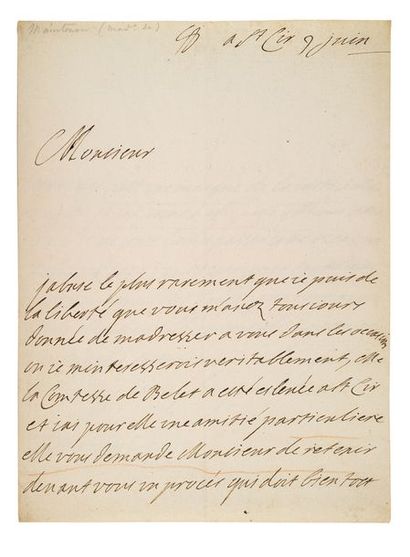 Maintenon (mad.e de)
a st Cir 9 juin
Monsieur
jabuse le plus rarement que ie puis de
la liberté que vous mauez tousiours
donnée de madresser a vous dans les occasions
ou ie minteresserois veritablement, elle
la Comtesse de Belet a esté eslevée a st Cir
et iay pour elle une amitié particuliere
elle vous demande Monsieur de retenir
deuant vous un procés qui doit bien tost